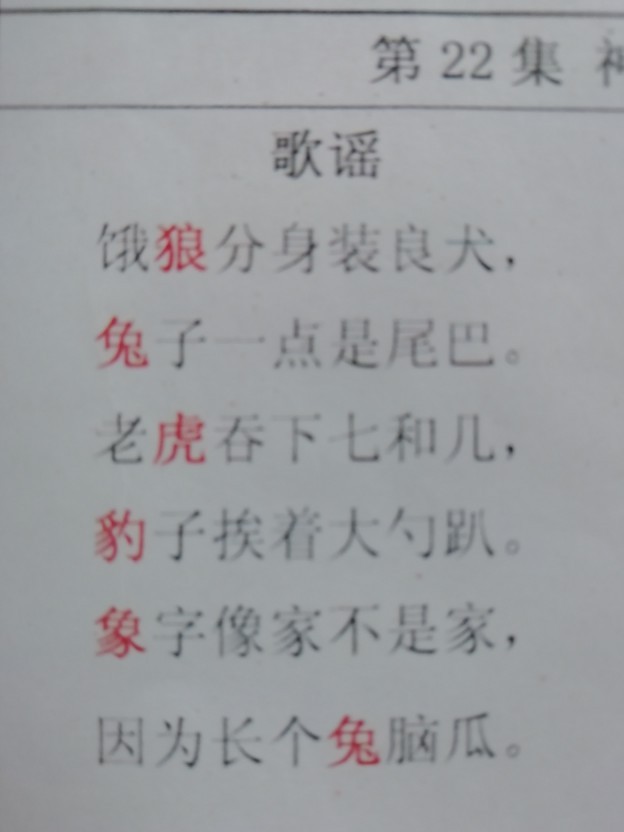 第 22 集
歌谣
饿狼分身装良犬，
兔子一点是尾巴。
老虎吞下七和几，
豹子挨着大勺趴。
象字像家不是家，
因为长个兔脑瓜。